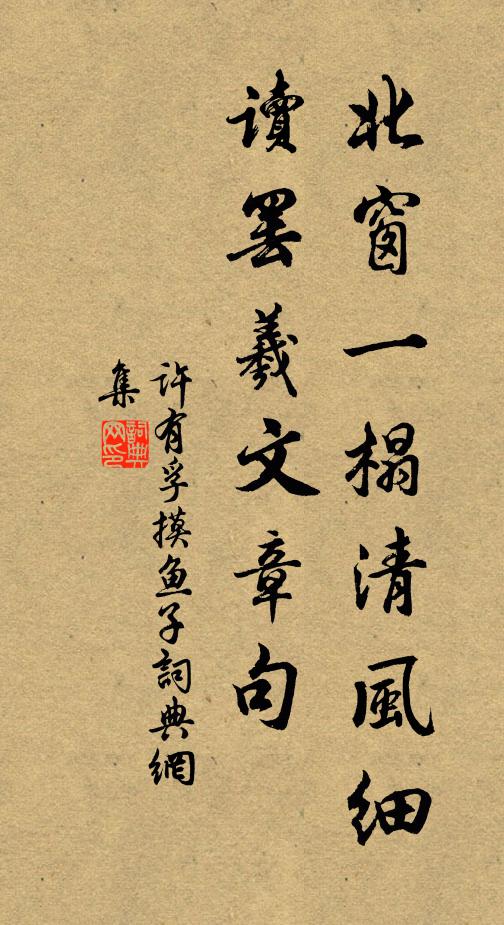 北窗一榻清風細
讀罷羲文章句
許有孚摸魚子詞典網
集
詞典
网印